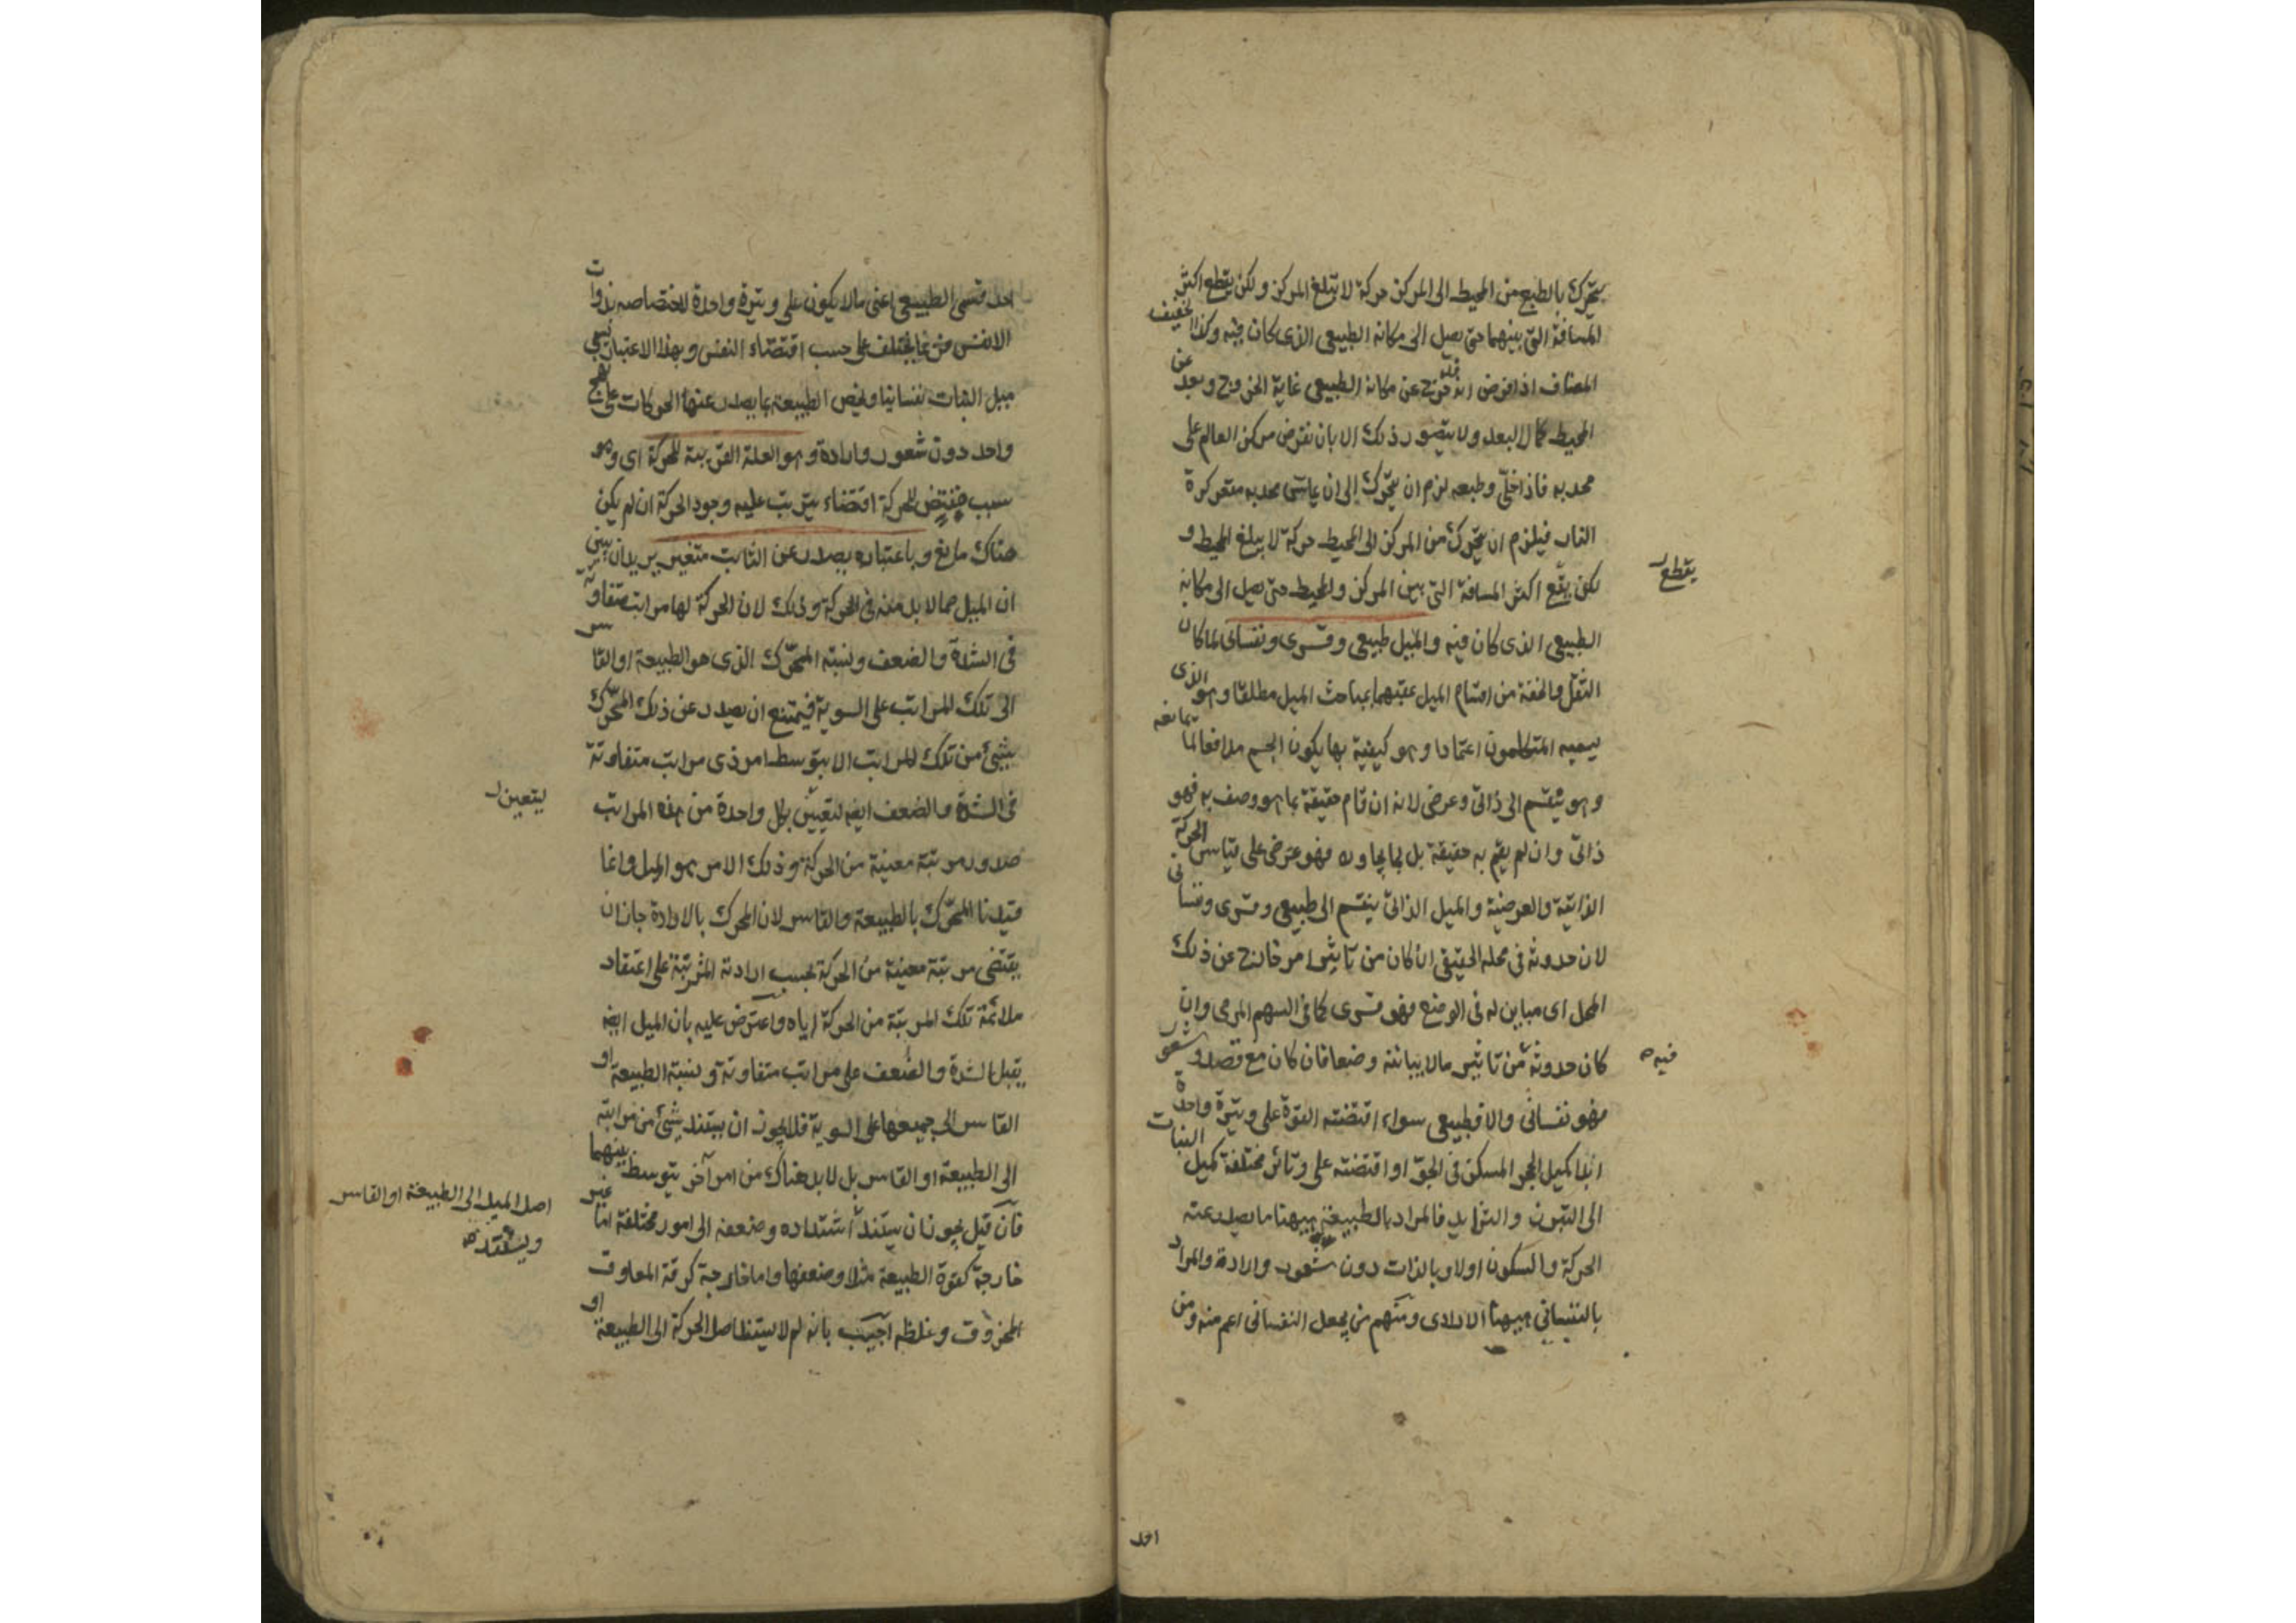 يتحرك بالطبع من المحيط الى المركز حركة لا تبلغ المركز ولكن يقطع اكثر
المسافة التى بينهما حتى يصل الى مكانه الطبيعى الذى كان فيه وكذا الخفيف
المضاف اذا فرض انه خرج عن مكانه الطبيعى غاية الخروج وبعد عن
المحيط كمال البعد ولا يتصور ذلك الا بان نفرض مركز العالم على
محدبه فاذا خلى وطبعه لزم ان يتحرك الى ان يماس محدبه مقعر كرة
النار فيلزم ان يتحرك من المركز الى المحيط حركة لا يبلغ المحيط و
لكن يقع اكثر المسافة التى بين المركز والمحيط حتى يصل الى مكانه
يقطع
الطبيعى الذى كان فيه والميل طبيعى وقسرى ونفسانى لما كان
الثقل والخفة من اقسام الميل عقبهما بمباحث الميل مطلقا وهو الذى
يسميه المتكلمون اعتمادا وهو كيفية بها يكون الجسم مدافعا لما يمانعه
وهو ينقسم الى ذاتى وعرضى لانه ان قام حقيقة بما هو وصف به فهو
ذاتى وان لم يقم به حقيقة بل بما يجاوره فهو عرضى على قياس الحركة
الذاتية والعرضية والميل الذاتى ينقسم الى طبيعى وقسرى ونفسانى
لان حدوثه فى محله الحقيقى ان كان من تاثير امر خارج عن ذلك
المحل اى مباين له فى الوضع فهو قسرى كما فى السهم المرمى وان
كان حدوثه من تاثير ما لا يباينه وضعا فان كان مع قصد وشعور
فيه
فهو نفسانى والا فطبيعى سواء اقتضته القوة على وتيرة واحدة
ابدا كميل الحجر المسكن فى الجو او اقتضته على وتائر مختلفة كميل النبات
الى التبرز والتزايد فالمراد بالطبيعة ههنا ما يصدر عنه
الحركة والسكون اولا وبالذات دون شعور وارادة والمراد
بالنفسانى ههنا الارادى ومنهم من يجعل النفسانى اعم منه ومن
احد
احد قسمى الطبيعى اعنى ما لا يكون على وتيرة واحدة لاختصاصه بذوات
الانفس فربما يختلف على حسب اقتضاء النفس وبهذا الاعتبار يسمى
ميل النبات نفسانيا ويخص الطبيعة بما يصدر عنها الحركات على نهج
واحد دون شعور وارادة وهو العلة القريبة للحركة اى وهو
سبب مقتض للحركة اقتضاء يترتب عليه وجود الحركة ان لم يكن
هناك مانع وباعتباره يصدر عن الثابت متغير يريد ان يبين
ان الميل مما لا بد منه فى الحركة وذلك لان الحركة لها مراتب متفاوتة
فى الشدة والضعف ونسبة المحرك الذى هو الطبيعة او القاسر
الى تلك المراتب على السوية فيمتنع ان يصدر عن ذلك المحرك
شىء من تلك المراتب الا بتوسط امر ذى مراتب متفاوتة
فى الشدة والضعف ايضا لتعين بكل واحدة من هذه المراتب
ليتعين
صدور مرتبة معينة من الحركة وذلك الامر هو الميل وانما
قيدنا المحرك بالطبيعة والقاسر لان المحرك بالارادة جاز ان
يقتضى مرتبة معينة من الحركة بحسب ارادته المترتبة على اعتقاد
ملائمة تلك المرتبة من الحركة اياه واعترض عليه بان الميل ايضا
يقبل الشدة والضعف على مراتب متفاوتة ونسبة الطبيعة او
القاسر الى جميعها على السوية فلا يجوز ان يستند شىء من مراتبه
الى الطبيعة او القاسر بل لا بد هناك من امر آخر يتوسط بينهما
اصل الميل الى الطبيعة او القاسر
ويستند
فان قيل يجوز ان يستند اشتداده وضعفه الى امور مختلفة اما غير
خارجة كقوة الطبيعة مثلا وضعفها واما خارجة كرقة المعاوق
المخروق وغلظه اجيب بانه لم لا يستند اصل الحركة الى الطبيعة او